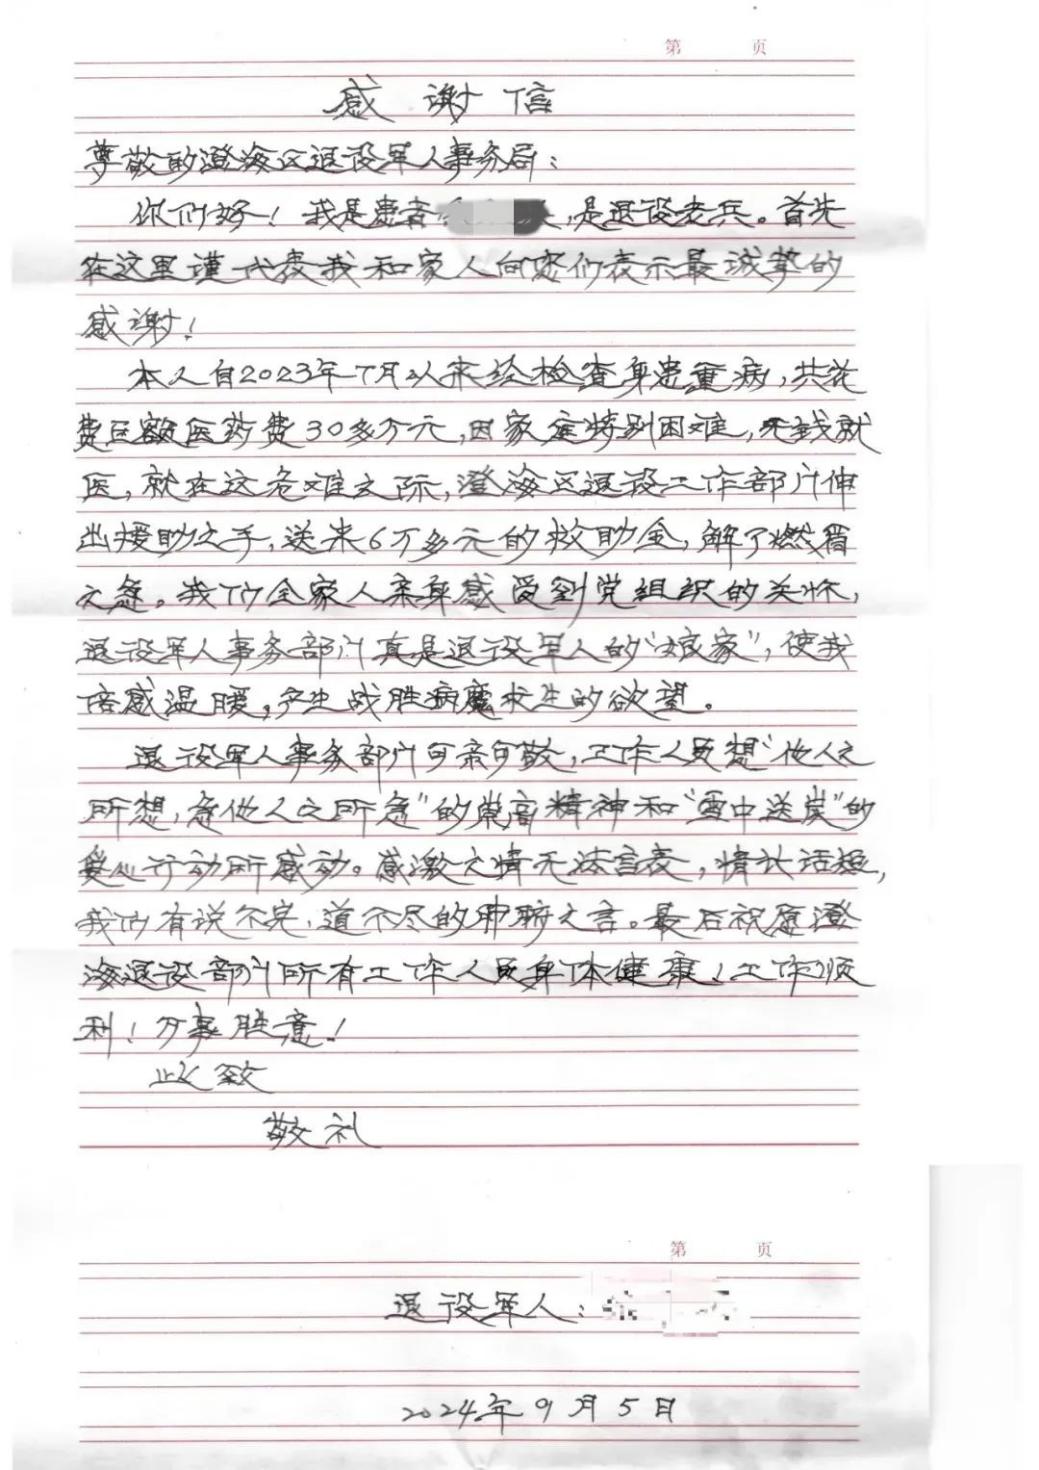 第 页
感谢信
尊敬的澄海区退役军人事务局：
你们好！我是患者，是退役老兵。首先
在这里谨代表我和家人向您们表示最诚挚的
感谢！
本人自2023年7月以来经检查身患重病，共花
费巨额医药费30多万元，因家庭特别困难，无钱就
医，就在这危难之际，澄海区退役工作部门伸
出援助之手，送来6万多元的救助金，解了燃眉
之急。我们全家人亲身感受到党组织的关怀，
退役军人事务部门真是退役军人的“娘家”，使我
倍感温暖，产生战胜病魔求生的欲望。
退役军人事务部门可亲可敬，工作人员想“他人之
所想，急他人之所急”的崇高精神和“雪中送炭”的
爱心行动所感动。感激之情无法言表，情长话短，
我们有说不完，道不尽的肺腑之言。最后祝愿澄
海退役部门所有工作人员身体健康！工作顺
利！万事胜意！
此致
敬礼
第 页
退役军人：
2024年9月5日